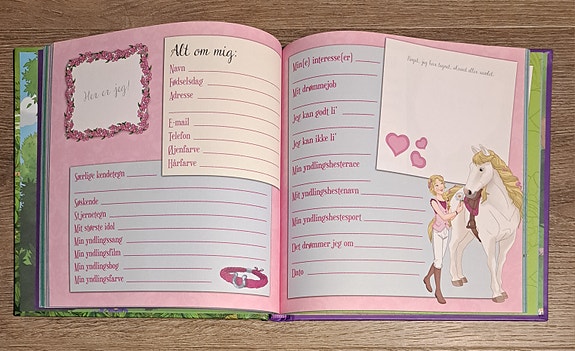 Her er jeg!
Alt om mig:
Navn
Fødselsdag
Adresse
E-mail
Telefon
Øjenfarve
Hårfarve
Særlige kendetegn
Søskende
Stjernetegn
Mit største idol
Min yndlingssang
Min yndlingsfilm
Min yndlingsbog
Min yndlingsfarve
Min(e) interesse(er)
Mit drømmejob
Jeg kan godt li'
Jeg kan ikke li'
Min yndlingshesterace
Mit yndlingshestenavn
Min yndlingshestesport
Det drømmer jeg om
Dato
jeg har tegnet, skrevet eller samlet: